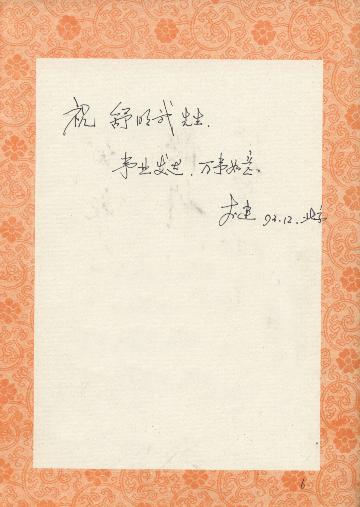 祝 舒明武 先生.
事业发达、万事如意.
建 92.12. 北京
6